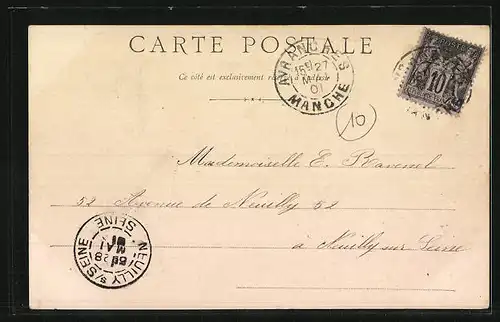 CARTE POSTALE
Ce côté est exclusivement réservé à l'adresse
AVRANCHES
27
MAI
01
MANCHE
10
10
Mademoiselle E. Ravenel
52 Avenue de Neuilly 52
à Neuilly sur Seine
NEUILLY S/SEINE
28
MAI
01
SEINE